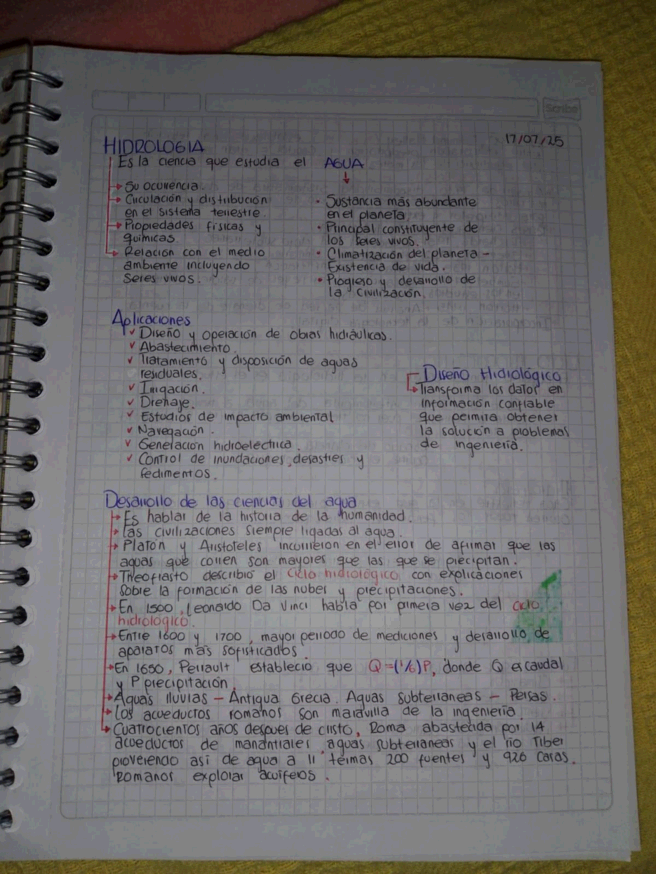 Scribe
17/07/25
HIDROLOGIA
Es la ciencia que estudia el AGUA
Su ocurencia.
Circulación y distribución
en el sistema terrestre.
Propiedades físicas y
químicas.
Relación con el medio
ambiente incluyendo
seres vivos.
• Sustancia más abundante
en el planeta
• Principal constituyente de
los seres vivos.
• Climatización del planeta -
Existencia de vida.
• Progreso y desarrollo de
la civilización.
Aplicaciones
✓ Diseño y operación de obras hidráulicas.
✓ Abastecimiento.
✓ Tratamiento y disposición de aguas
residuales.
✓ Irrigación.
✓ Drenaje.
✓ Estudios de impacto ambiental
✓ Navegación.
✓ Generación hidroeléctrica.
✓ Control de inundaciones, desastres y
sedimentos.
Diseño Hidrológico
Transforma los datos en
información confiable
que permita obtener
la solución a problemas
de ingeniería.
Desarrollo de las ciencias del agua
Es hablar de la historia de la humanidad.
Las civilizaciones siempre ligadas al agua.
Platón y Aristoteles incurrieron en el error de afirmar que las
aguas que corren son mayores que las que se precipitan.
Theofrasto describió el ciclo hidrológico con explicaciones
sobre la formación de las nubes y precipitaciones.
En 1500, Leonardo Da Vinci habla por primera vez del ciclo
hidrológico.
Entre 1600 y 1700, mayor periodo de mediciones y desarrollo de
aparatos más sofisticados.
En 1650, Perrault estableció que Q=(1/6)P, donde Q es caudal
y P precipitación.
Aguas lluvias - Antigua Grecia. Aguas subterraneas - Persas.
Los acueductos romanos son maravilla de la ingeniería.
Cuatrocientos años despues de cristo, Roma abastecida por 14
acueductos de manantiales, aguas subterraneas y el río Tiber
proveiendo así de agua a 11 termas 200 fuentes y 926 casas.
Romanos explorar acuíferos.